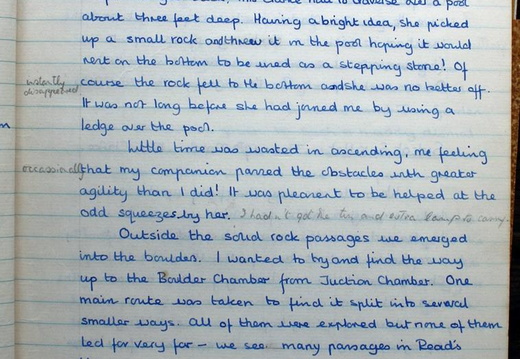 about three feet deep. Having a bright idea, she picked
up a small rock and threw it in the pool hoping it would
rest on the bottom to be used as a stepping stone! Of
instantly
disappeared
course the rock fell to the bottom and she was no better off.
It was not long before she had joined me by using a
ledge over the pool.
Little time was wasted in ascending, me feeling
occassionally
that my companion passed the obstacles with greater
agility than I did! It was pleasent to be helped at the
odd squeezes by her. I hadn't got the and extra to carry.
Outside the solid rock passages we emerged
into the boulders. I wanted to try and find the way
up to the Boulder Chamber from Juction Chamber. One
main route was taken to find it split into several
smaller ways. All of them were explored but none of them
led for very far - we see many passages in Read's